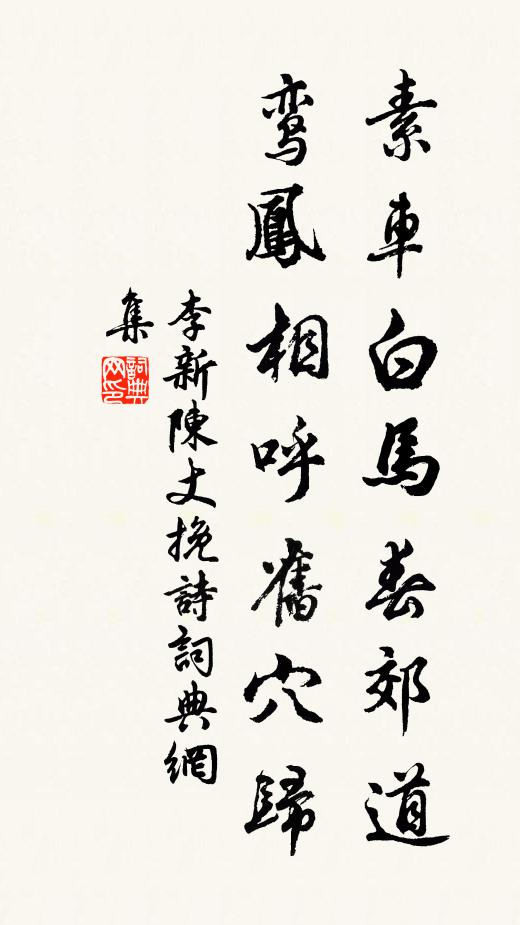 素車白馬春郊道
鸞鳳相呼舊穴歸
李新陳丈挽詩詞典網
集
詞典網印